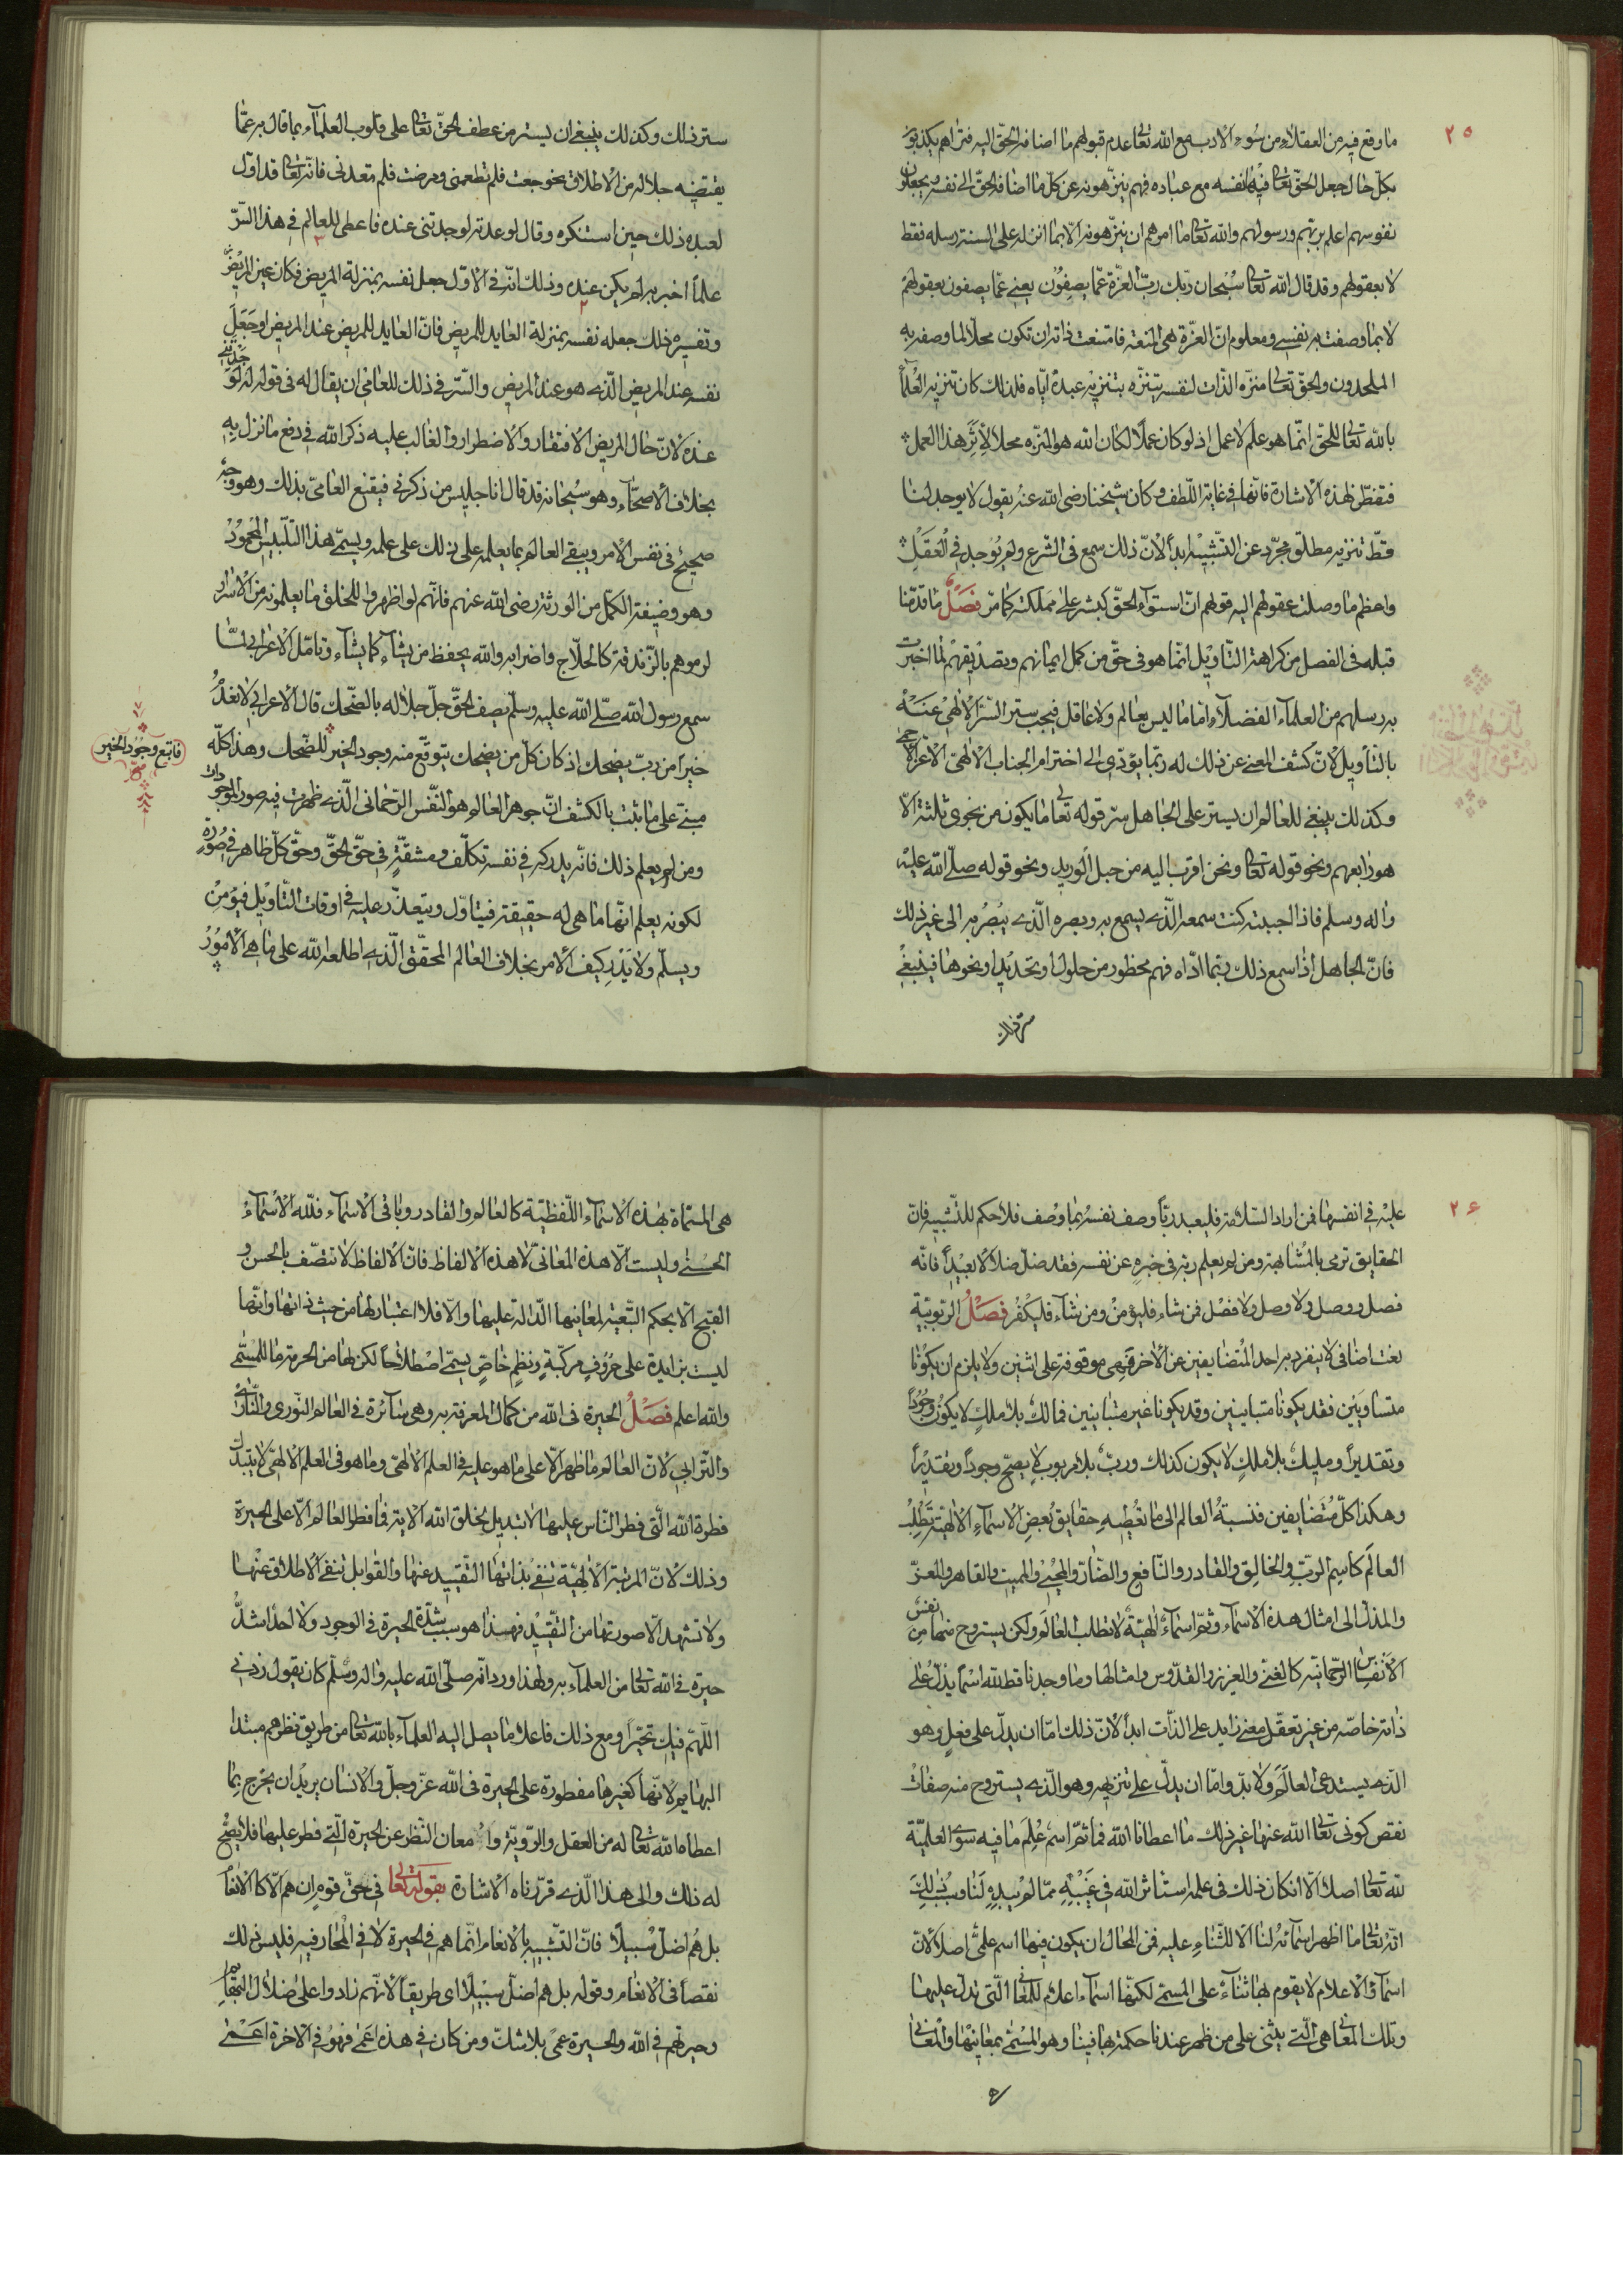 ٢٥
ما وقع فيه من العقلاء من سوء الادب مع الله تعالى عدم قبولهم ما اضافه الحق اليه فتراهم يكذبونه
بكل حال جعل الحق تعالى فيه نفسه مع عباده فهم ينزهونه عن كل ما اضافه الحق الى نفسه ويجعلون
نفوسهم اعلم بربهم ورسولهم والله تعالى ما امرهم ان ينزهونه الا بما انزله على السنة رسله فقط
لا بعقولهم وقد قال الله تعالى سُبحان ربك ربّ العزّة عمّا يصِفُون يعنى عمّا يصفون بعقولهم
لا بما وصفت به نفسى ومعلوم انّ العزّة هى المنعة فامتنعت ذاته ان تكون محلّا لما وصفه به
الملحدون والحق تعالى منزّه الذات لنفسه يتنزّه بتنزيه عبده ايّاه فلذلك كان تنزيه العُلماء
بالله تعالى للحق انّما هو علم لا عمل اذ لو كان عملًا لكان الله هو المنزّه محلا لِأثَرِ هذا العمل
فتفطّن لهذه الاشارة فانها فى غاية اللّطف وكان شيخنا رضى الله عنه يقول لا يوجد لنا
قطّ تنزيه مطلق مجرّد عن التشبيه ابداً لانّ ذلك سمع فى الشرع ولم يُوجد فى العَقل
واحظ ما وصلت عقولهم اليه قولهم انّ استواء الحقّ كبشر على مملكته كما مرّ فَصْلٌ ما قدّمنا
قبله فى الفصل من كراهة التأويل انّما هو فى حقّ من كمل ايمانهم وتصديقهم لما اخبرت
به رسلهم من العلماء الفضلاء امّا ما ليس بعالم ولا عاقل فيجب ستر السّرّ الالهى عنه
بالتأويل لانّ كشف المعنى عن ذلك له ربّما يؤدّى الى اخترام الجناب الالهىّ الاعزّ الاحمى
وكذلك ينبغى للعالم ان يستر على الجاهل سرّ قوله تعالى ما يكون من نجوى ثلثة الّا
هو رابعهم ونحو قوله تعالى ونحن اقرب اليه من حبل الوريد ونحو قوله صلّى الله عليه
واله وسلم فاذا احببته كنت سمعه الّذى يسمع به وبصره الّذى يبصُر به الى غير ذلك
فانّ الجاهل اذا سمع ذلك ربّما ادّاه فهم محظور من حلول او تحديد او نحوها فينبغى
ستر ذلك
ستر ذلك وكذلك ينبغى ان يستر من عطف الحقّ تعالى على قلوب العلماء بما قال به عمّا
يقتضيه جلاله من الاطلاق بنحو جعت فلم تطعمنى ومرضت فلم تعدنى فانّه تعالى قد اوّل
لعبده ذلك حين استنكره وقال لو عدته لوجدتنى عنده فاعطى للعالم فى هذا السّرّ
علماً اخبر به لم يكن عنده وذلك انّه فى الاوّل جعل نفسه بمنزلة المريض فكان عين المريض
وتفسيره ذلك جعله نفسه بمنزلة العايد للمريض فانّ العايد للمريض عند المريض او جَعَلَ
نفسه عند المريض الّذى هو عند المريض والسّر فى ذلك للعامى ان يقال له فى قوله لو جدتنى
عنده لانّ حال المريض الافتقار والاضطرار والغالب عليه ذكر الله فى دفع ما نزل بِهِ
بخلاف الاصحّاء وهو سُبحانه قد قال انا جليس من ذكرنى فيقنع العامىّ بذلك وهو وجهٌ
صحيحٌ فى نفس الامر ويبقى العالم بما يعلمه على ذلك على علمه ويسمّى هذا التلبيس المحمُودُ
وهو وضيفة الكمّل من الورثة رضى الله عنهم فانّهم لو اظهروا للخلق ما يعلمونه من الاسرار
لرموهم بالزّندقة كالحلّاج واضرابه والله يحفظ من يشاء كما يشاء وتامّل الاعرابى لمّا
سمع رسول الله صلّى الله عليه وسلم يصف الحقّ جلّ جلاله بالضّحك قال الاعرابى لا نعدمُ
خيراً من ربّ يضحك اذ كان كلّ من يضحك يتوقّع منه وجود الخير للضّحك وهذا كلّه
فاتبع وجود الخير
صح
مبنىّ على ما ثبت بالكشف انّ جوهر العالم هو النّفس الرّحمانى الّذى ظهرت فيه صور الموجودات
ومن لم يعلم ذلك فانّه يدركه فى نفسه تكلّف ومشقّةٍ فى حقّ الحقّ وحقّ كلّ ظاهر فى صُورةٍ
لكونه يعلم انّها ما هى له حقيقة فيتأوّل ويتعذّر عليه فى اوقات التّأويل فيؤمِنُ
ويسلّم ولا يَدْرِ كيف الامر بخلاف العالم المحقّق الّذى اطلعه الله على ما هى الامُورُ
٢۶
عليهْ فى انفسها فمن اراد السّلامة فليعبد ربّاً وصف نفسهُ بما وُصف فلا حكم للتّشبيه فانّ
الحقايق ترمى بالمُشابهة ومن لم يعلم ربّه فى خبرهِ عن نفسه فقد ضلّ ضلالا بعيدًا فانّه
فصل ووصل ولا وصل ولا فصْل فمن شاء فليؤمنْ ومن شاء فليكفُر فَصْلٌ الربوبيّة
نعت اضافى لا ينفرد به احد المُتضايفين عن الاخر فهى موقوفة على اثنين ولا يلزم ان يكونا
متساويَيْن فقد يكونا متباينين وقد يكونا غير متباينين فمالكٌ بلا ملكٍ لا يكون وجُوداً
وتقديراً ومليكٌ بلا ملكٍ لا يكون كذلك وربٌّ بلا مربوب لا يصحّ وجوداً وتقديراً
وهكذا كلّ مُتضايفين فنسبةُ العالم الى ما تُعْطِيهِ حقايق بُعضِ الاسماءِ الالهيّة تَطلبُ
العالَم كاسِم الربّ والخالِق والقادر والنّافع والضّارّ والمحْيى والمميت والقاهر والمعزّ
والمذلّ الى امثال هذه الاسماء وثمّ اسماءٌ الهيّةٌ لا تطلب العالَم ولكن يستروح منها مِن نفسُ
الانفاس الرّحمانيّه كالغنى والعزيز والقدّوس وامثالها وما وجدنا قط لله اسْماً يدلّ على
ذاته خاصّه من غير تعقّل معنى زايد على الذّات ابداً لانّ ذلك امّا ان يدلّ على فعلٍ وهو
الّذى يستدعى العالَمَ ولا بدّ وامّا ان يدلّ على تنزيهٍ وهو الّذى يستروح منه صفات
نقص كونى تعالى الله عنها غير ذلك ما اعطانا الله فما ثمّ اسمٌ عُلِمَ ما فيه سِوَى العلميّة
لله تعالى اصلا الّا ان كان ذلك فى علمه استأثر الله فى غَيْبِهِ ممّا لم يُبدِهِ لَنا وسبب ذلِكَ
انّه تعالى ما اظهر اسمائه لنا الا للثّناءِ عليه فمن المحال ان يكون فيها اسم علمىٌّ اصلًا لانّ
اسماءَ الاعلام لا يقوم بها ثناءٌ على المسمّى لكنّها اسماء اعلام للمعانى الّتى تدلّ عليها
وتلك المعانى هى الّتى يثنى على من ظهر عندنا حكمته بها فينا وهو المُسمّى بمعانيها والمعانى
هى
هى المسمّاة بهذه الاسماء اللّفظيّة كالعالم والقادر وباقى الاسماء فللّه الاسْماءُ
الحسْنى وليست الّا هذه المعانىّ لا هذه الالفاظ فانّ الالفاظ لا تتّصف بالحسن و
القبح الّا بحكم التّبعيّه لمعانيها الدّالة عليها والّا فلا اعتبار لها من حيث ذاتها وانّها
ليست بزايدة على حرُوفٍ مركّبةٍ ونظمٍ خاصٍّ يسمّى اصْطلاحاً لكن لها من الحرمة ما للمُسَمّى
والله اعلم فَصْلٌ الحيرة فى الله من كمال المعرفة به وهى سائرة فى العالم النّورى والنّارىّ
والتّرابى لانّ العالم ما ظهر الّا على ما هو عليه فى العلم الالهىّ وما هو فى العلم الالهىّ لا يتبدّل
فطرة الله الّتى فطر النّاس عليها لا تبديل لخلق الله الاية فما فطر العالم الّا على الحيرة
وذلك لانّ المرتبة الالهيّة تنفى بذاتها التّقييد عنها والقوابل تنفى الاطلاق عنْها
ولا تشهد الّا صورتها من التّقييد فهذا هو سبب شدّة الحيرة فى الوجود ولا احد اشدُّ
حيرة فى الله تعالى من العلماء به ولهذا ورد انّه صلّى الله عليه واله وسلّم كان يقول زدنى
اللّهمّ فيك تحيّراً ومع ذلك فاعلا ما يصل اليه العلماء بالله تعالى من طريق نظرهم مبتدا
البهايم لانّها كغيرها مفطورة على الحيرة فى الله عزّ وجلّ والانسان يريد ان يخرج بما
اعطاه الله تعالى له من العقل والرّويّة وامعان النّظر عن الحيرة الّتى فطر عليها فلا يصحّ
له ذلك والى هذا الّذى قرّرناه الاشارة بقوله تعالى فى حقّ قومٍ ان هم الّا كالانعام
بل هُم اضلّ سبيلًا فانّ التّشبيه بالانعام انّما هم فى الحيرة لا فى المُحار فيه فليس ذلك
نقصاً فى الانعام وقوله بل هم اضلّ سبيلا اى طريقاً لانّهم زادوا على ضلال البهايم
وحيرتهم فى الله والحيرة عمىً بلا شكّ ومن كان فى هذه اعمى فهُو فى الاخرة اعمى